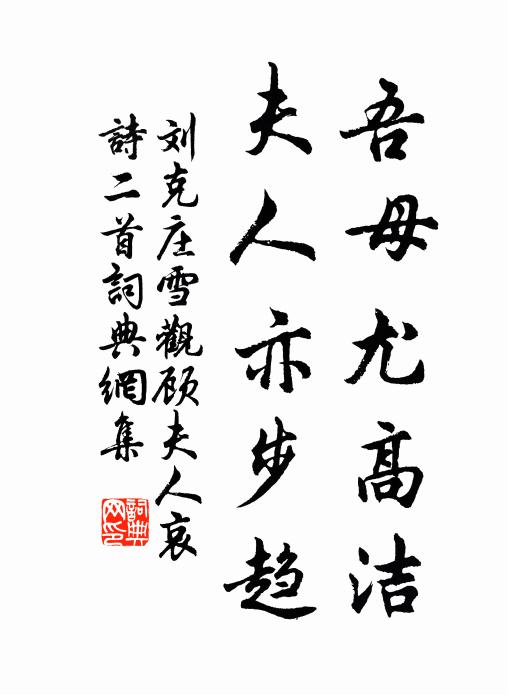 吾毋尤高洁
夫人亦步趋
刘克庄雪觀顾夫人哀
詩二首詞典網集
詞典
网印